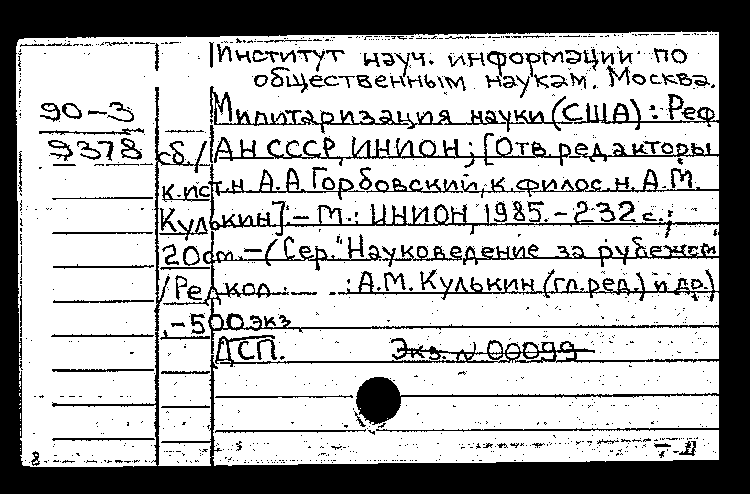 Институт науч. информации по
общественным наукам. Москва.
90-3 Милитаризация науки (США) : Реф
9378 сб. / АН СССР, ИНИОН ; [Отв. редакторы
к.ист.н. А.А. Горбовский, к.филос.н. А.М.
Кулькин]. - М. : ИНИОН, 1985. - 232 с. ;
20см. - (Сер. "Науковедение за рубежом"
/ Редкол.: : А.М. Кулькин (гл. ред.) и др.)
. - 500 экз.
ДСП. Экз. N 00099
8